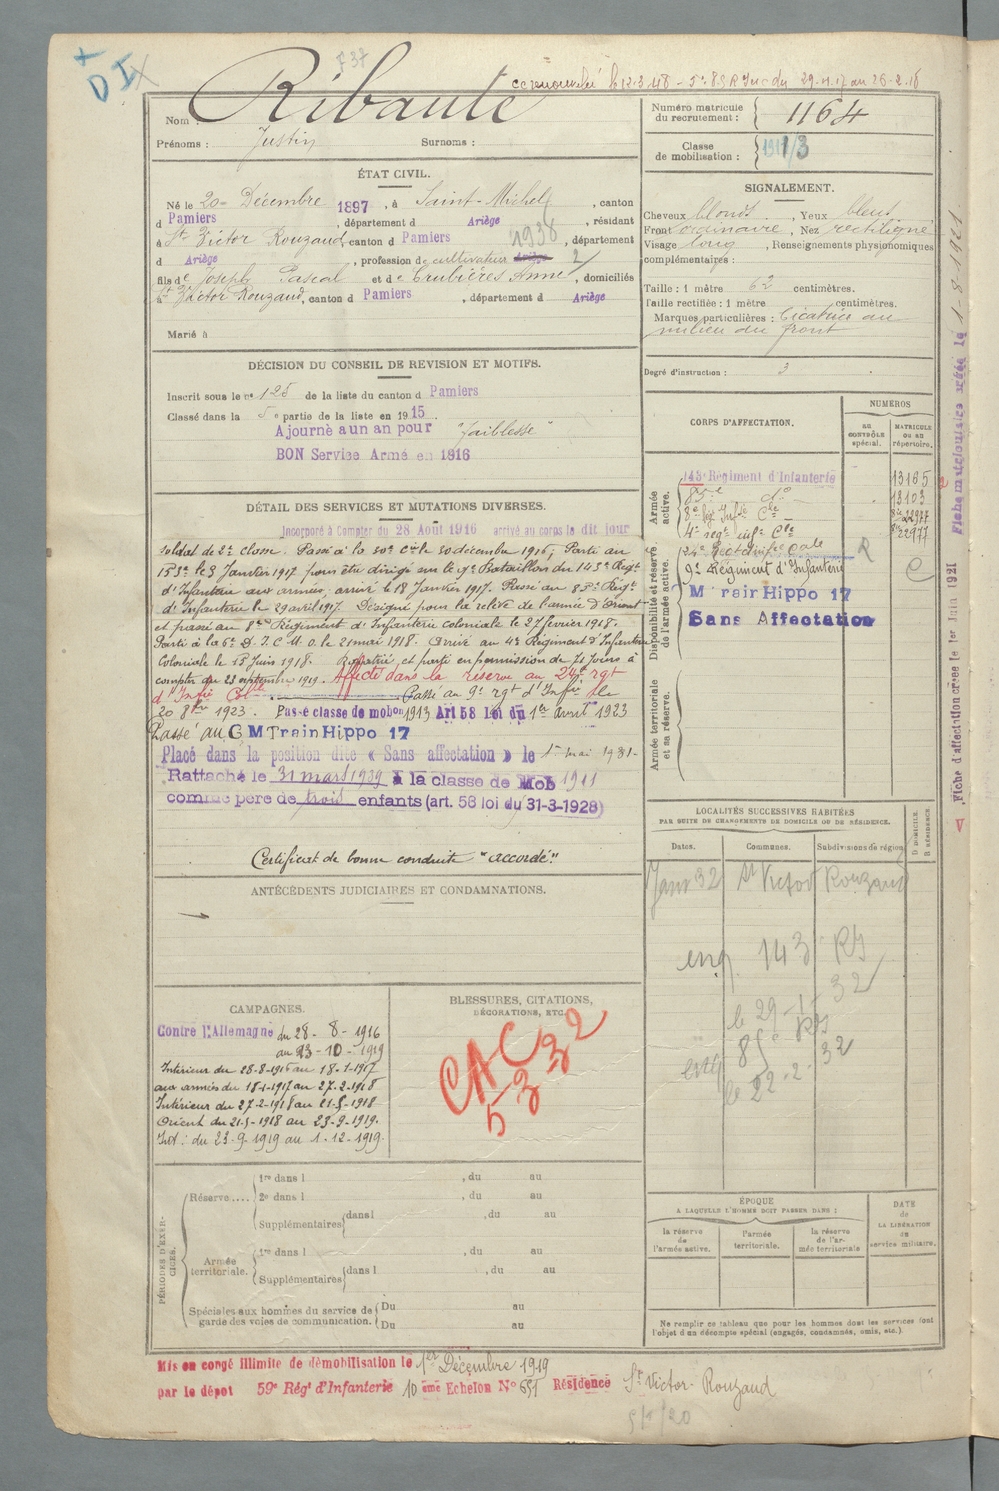 +
DI
F 37
cc renouvelé le 12.3.48 - 5e 85 R Inf du 29.4.17 au 26-2-18
Nom : Ribaute
Prénoms : Justin Surnoms :
Numéro matricule
du recrutement : 1164
Classe
de mobilisation :
ÉTAT CIVIL.
Né le 20 Décembre 1897, à Saint-Michel, canton
d Pamiers, département d Ariège, résidant
à St Victor Rouzaud canton d Pamiers 1938, département
d Ariège, profession de cultivateur 2/
fils de Joseph Pascal et de Brulières Anne, domiciliés
à St Victor Rouzaud, canton d Pamiers, département d Ariège
Marié à
SIGNALEMENT.
Cheveux blonds, Yeux bleus
Front ordinaire, Nez rectiligne
Visage long, Renseignements physionomiques
complémentaires :
Taille : 1 mètre 62 centimètres.
Taille rectifiée : 1 mètre centimètres.
Marques particulières : Cicatrice au
milieu du front
Degré d'instruction : 3
DÉCISION DU CONSEIL DE REVISION ET MOTIFS.
Inscrit sous le n° 125 de la liste du canton d Pamiers
Classé dans la 5e partie de la liste en 1915
Ajourné à un an pour "faiblesse"
BON Service Armé en 1916
CORPS D'AFFECTATION.
NUMÉROS
au
CONTRÔLE
spécial.
MATRICULE
ou au
répertoire.
Armée
active.
143e Régiment d'Infanterie 13165
85e do 13103
8e Rég Infie Cle 22977
4e regt infie Cle 22977
Disponibilité et réserve
de l'armée active.
24e Rect Infie Cale R
9e Régiment d'Infanterie C
M Train Hippo 17
Sans Affectation
Armée territoriale
et sa réserve.
DÉTAIL DES SERVICES ET MUTATIONS DIVERSES.
Incorporé à Compter du 28 Août 1916 arrivé au corps le dit jour
soldat de 2e classe. Passé à la 30e Cie le 30 décembre 1916; Parti au
153e le 3 Janvier 1917 pour être dirigé sur le 9e Bataillon du 143e Régt
d'Infanterie aux armées; arrivé le 18 Janvier 1917. Passé au 85e Régt
d'Infanterie le 29 avril 1917. Désigné pour la relève de l'armée d'Orient
et passé au 8e Régiment d'Infanterie coloniale le 27 février 1918.
Parti à la 6e D.I.C.M.O. le 21 mai 1918. Arrivé au 4e Régiment d'Infanterie
Coloniale le 15 Juin 1918. Rapatrié et parti en permission de 71 jours à
compter du 23 septembre 1919. Affecté dans la réserve au 24e rgt
d'Infie Cle Passé au 9e rgt d'Infie le
20 8bre 1923. Passé classe de mobon 1913 Art 58 loi du 1er avril 1923
Passé au C M Train Hippo 17
Placé dans la position dite « Sans affectation » le 1er mai 1931-
Rattaché le 31 mars 1939 à la classe de Mob 1911
comme père de trois enfants (art. 58 loi du 31-3-1928)
Certificat de bonne conduite "accordé"
ANTÉCÉDENTS JUDICIAIRES ET CONDAMNATIONS.
LOCALITÉS SUCCESSIVES HABITÉES
PAR SUITE DE CHANGEMENTS DE DOMICILE OU DE RÉSIDENCE.
Dates. Communes. Subdivisions de région.
D DOMICILE.
R RÉSIDENCE.
Janv 32 St Victor Rouzaud
143 RI
le 29-1-32
85e RI
le 22.2.32
CAMPAGNES.
Contre l'Allemagne du 28-8-1916
au 23-10-1919
Intérieur du 28-8-1916 au 18-1-1917
aux armées du 18-1-1917 au 27-2-1918
Intérieur du 27-2-1918 au 21-5-1918
Orient du 21-5-1918 au 23-9-1919.
Int : du 23-9-1919 au 1-12-1919.
BLESSURES, CITATIONS,
DÉCORATIONS, ETC.
CAC
5-3 32
PÉRIODES D'EXERCICES.
Réserve....
1re dans l , du au
2e dans l , du au
Supplémentaires dans l , du au
Armée
territoriale.
1re dans l , du au
Supplémentaires dans l , du au
Spéciales aux hommes du service de
garde des voies de communication.
Du au
Du au
ÉPOQUE
A LAQUELLE L'HOMME DOIT PASSER DANS :
la réserve
de
l'armée active.
l'armée
territoriale.
la réserve
de l'ar-
mée territoriale
DATE
de
LA LIBÉRATION
du
service militaire.
Ne remplir ce tableau que pour les hommes dont les services font
l'objet d'un décompte spécial (engagés, condamnés, omis, etc.).
Mis en congé illimité de démobilisation le 1er Décembre 1919
par le dépôt 59e Régt d'Infanterie 10ème Echelon No 651 Résidence St Victor-Rouzaud
Fiche d'affectation créée le 1er Juin 1921
Fiche matriculaire créée le 1-8-1921.